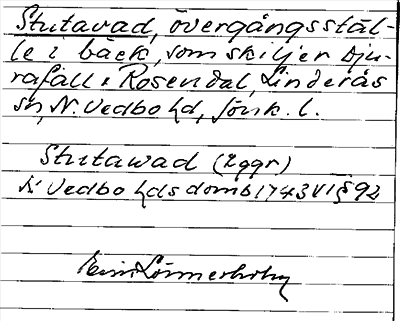 Stutavad, övergångsstäl-
le i bäck, som skiljer Dju-
rafall o Rosendal, Linderås
sn, N. Vedbo hd, Jönk. l.
Stutawad (2 ggr)
N Vedbo hds domb 1743 VI § 92